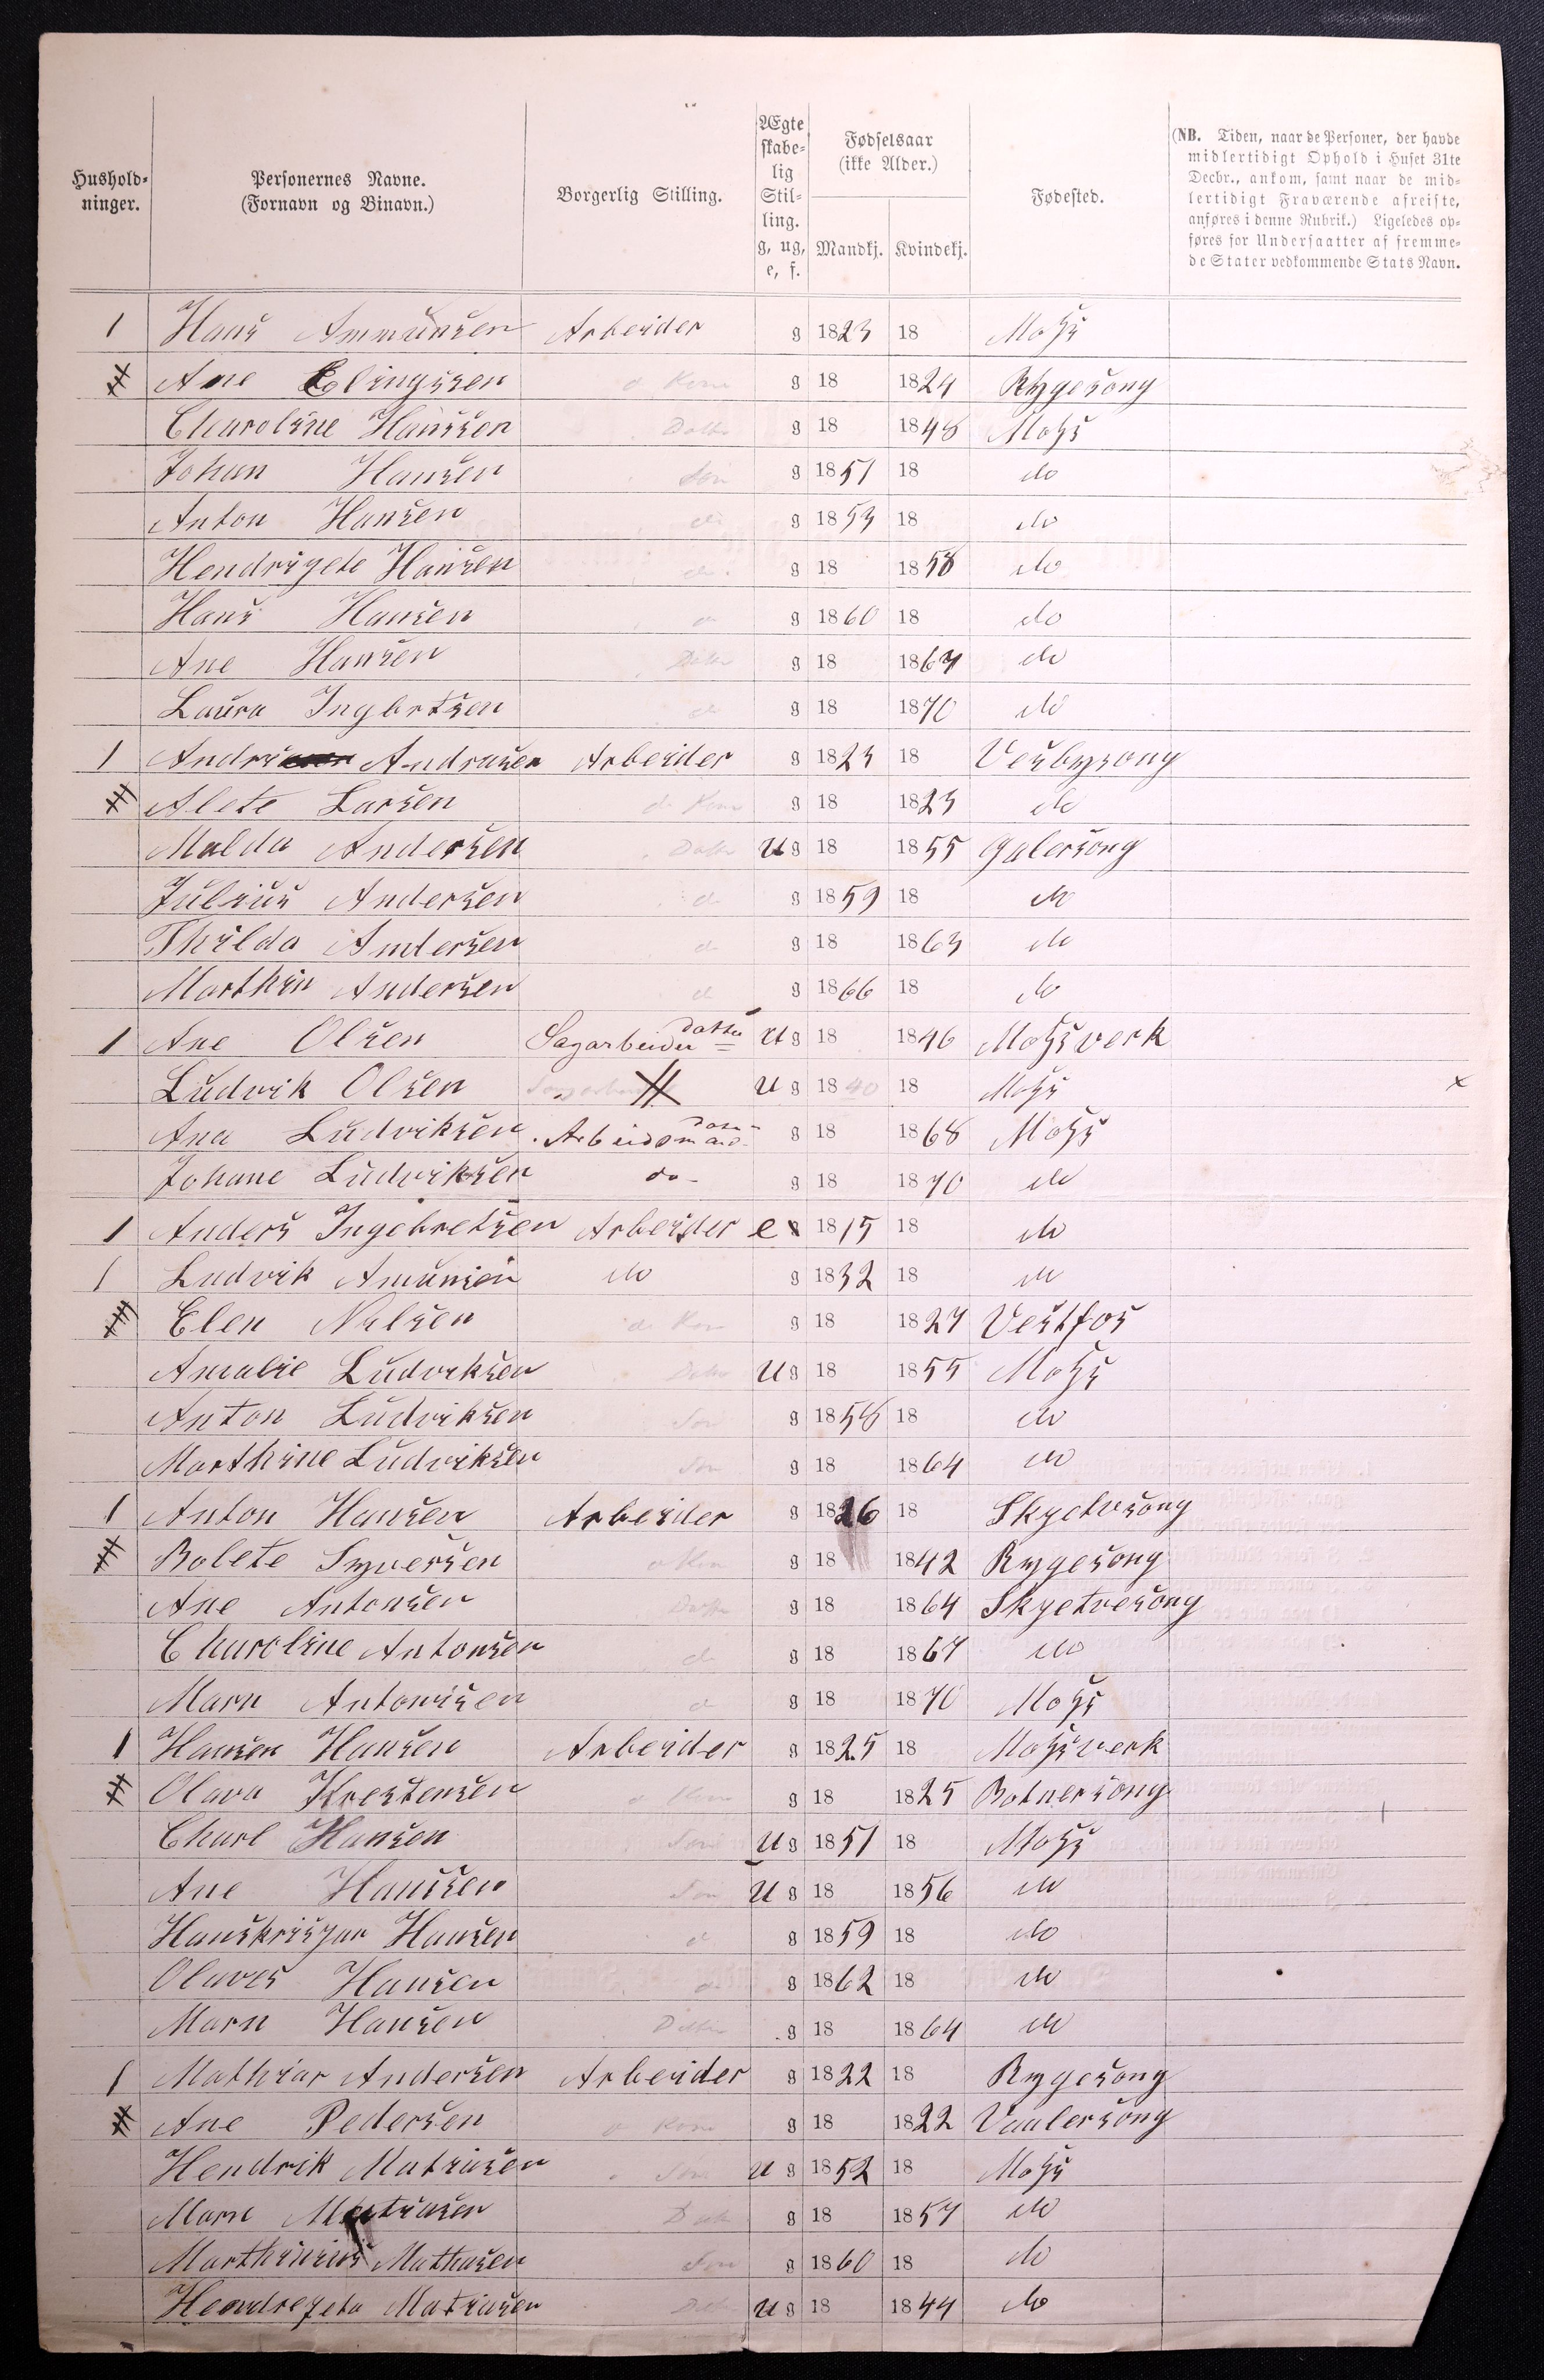 Hushold-
ninger.
Personernes Navne.
(Fornavn og Binavn.)
Borgerlig Stilling.
Ægte
skabe-
lig
Stil-
ling.
g, ug,
e, f.
Fødselsaar
(ikke Alder.)
Mandkj. Kvindekj.
Fødested.
(NB. Tiden, naar de Personer, der havde
midlertidigt Ophold i Huset 31te
Decbr., ankom, samt naar de mid-
lertidigt Fraværende afreiste,
anføres i denne Rubrik.) Ligeledes op-
føres for Undersaatter af fremme-
de Stater vedkommende Stats Navn.
1 Hans Ammunsen Arbeider g 1823 18 Moss
Ane Elingsen Kone g 18 1824 Rygesong
Charoline Hanssen Datter g 18 1848 Moss
Johan Hansen Søn g 1851 18 do
Anton Hansen do g 1853 18 do
Hendrigete Hansen do g 18 1858 do
Hans Hansen do g 1860 18 do
Ane Hansen Datter g 18 1867 do
Laura Ingbrtsen do g 18 1870 do
1 Andrasen Arbeider g 1823 18 Vesbysong
Alete Larsen Kone g 18 1823 do
Malda Andersen Datter u g 18 1855 Galersong
Julius Andersen d g 1859 18 do
Thilda Andersen d g 18 1863 do
Marthin Andersen d g 1866 18 do
1 Ane Olsen Sagarbeider datter u g 18 1846 Mossverk
Ludvik Olsen u g 1840 18 Moss x
Ana Ludviksen Arbeidsmand g 18 1868 Moss
Johane Ludviksen do g 18 1870 do
1 Anders Ingebretsen Arbeider e 1815 18 do
1 Ludvik Amunsen do g 1832 18 do
Elen Nilsen Kone g 18 1827 Vestfos
Amalie Ludviksen Datter u g 18 1855 Moss
Anton Ludviksen Søn g 1858 18 do
Marthine Ludviksen Søn g 18 1864 do
1 Anton Hansen Arbeider g 1826 18 Skyetvsong
Bolete Syversen Kone g 18 1842 Rygesong
Ane Antonsen Datter g 18 1864 Skyetvesong
Charoline Antonsen d g 18 1867 do
Marn Antonsen d g 18 1870 Moss
1 Hansen Hansen Arbeider g 1825 18 Mossverk
Olava Krestensen Kone g 18 1825 Botnersong
Charl Hansen Søn u g 1851 18 Moss
Ane Hanssen Søn u g 18 1856 do
Hanskrisjan Hansen d g 1859 18 do
Olaves Hansen d g 1862 18 do
Marn Hansen Datter g 18 1864 do
1 Mathias Andersen Arbeider g 1822 18 Rygesong
Ane Pedersen Kone g 18 1822 Vaalersong
Hendrik Matiasen Søn u g 1852 18 Moss
Marn Matiasen Datt g 18 1857 do
Marthinius Mathasen Søn g 1860 18 do
Hendregete Matiasen Datter u g 18 1844 do